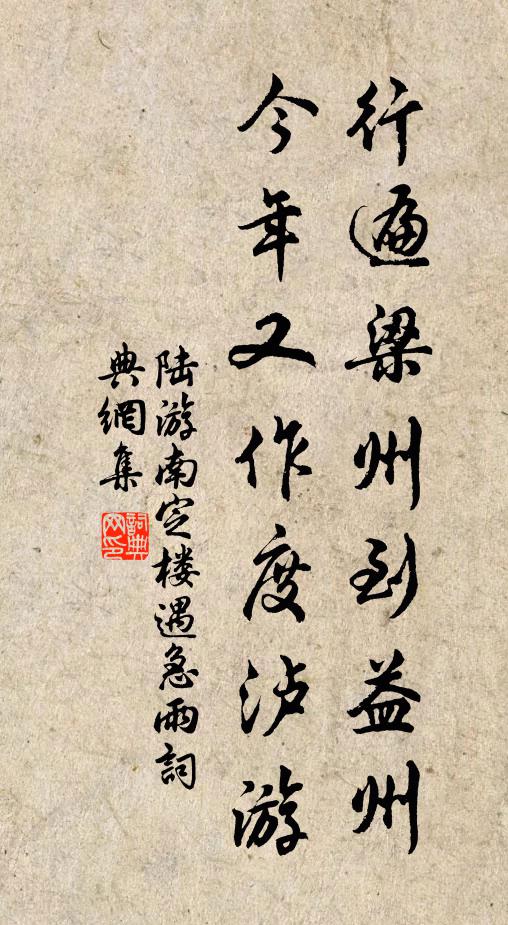 行遍梁州到益州
今年又作度泸游
陆游南定楼遇急雨詞
典網集
詞典
网印